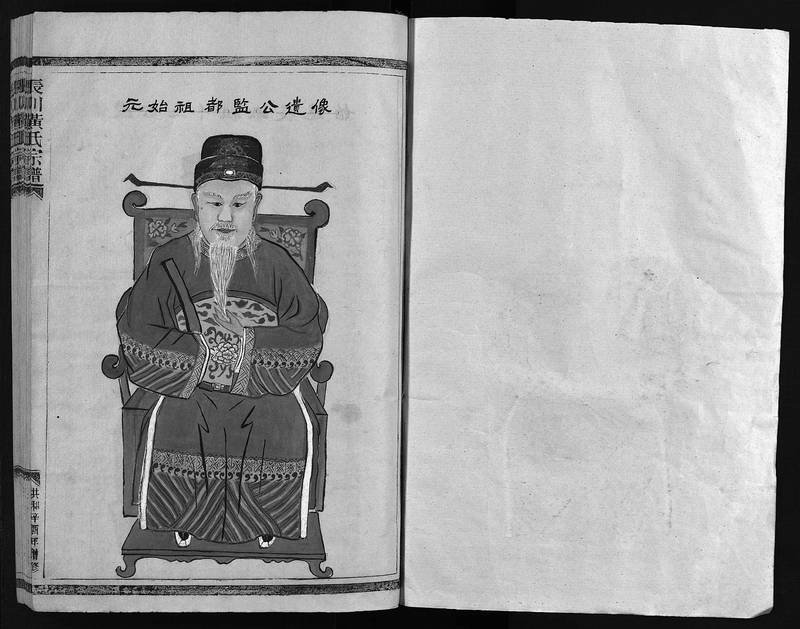 元始祖都監公遺像
長川黃氏宗譜
共和辛酉年修